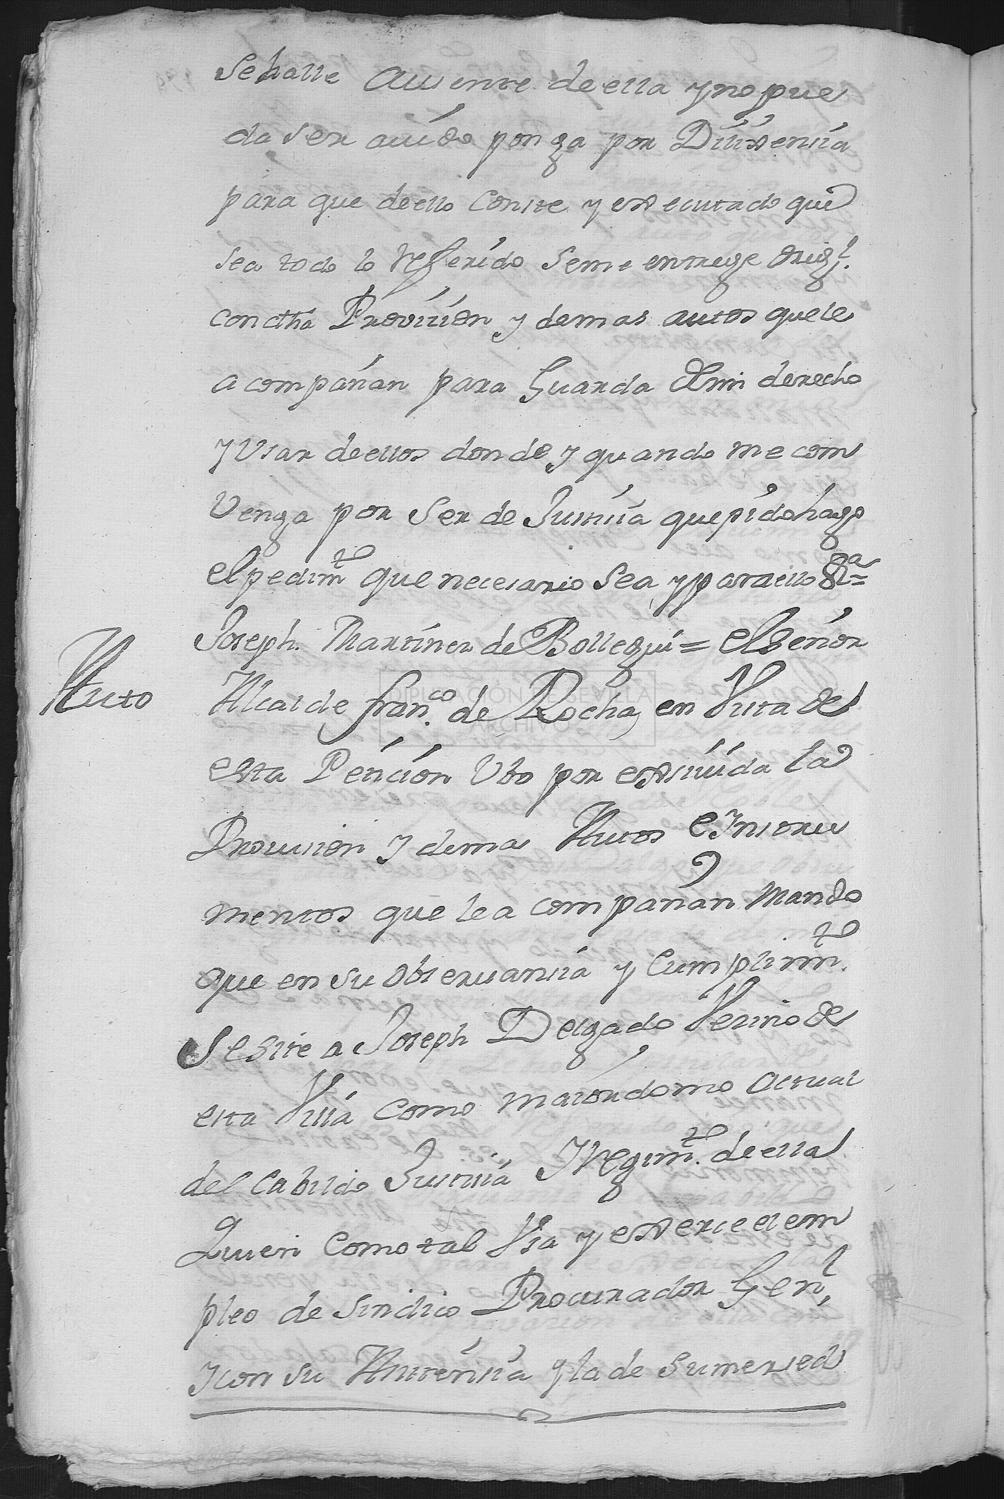 Sehalle Ausente de ella y no pue
da ser auido ponga por Dilixensia
para que de ello Conste y executado que
sea todo lo Referido seme entrege Orig.l
con dha Provision y demas autos que le
acompañan para Guarda de mi derecho
y Usar de ellos donde y quando me com
Venga por ser de Justisia que pido hago
el pedim.to que necesario sea, y para ello &.a =
Joseph. Martinez de Bollegui = el señor
Auto
Alcalde fran.co de Rocha, en Vista de
esta Petision Ubo por exsivida la
Provision y demas Autos e Instru
mentos que le acompañan Mando
que en su obseruansia y Cumplim.to
Se site a Joseph Delgado Vesino de
esta Villa como maiordomo actual
del Cabildo Justisia y Regim.to de ella
Quien como tal Usa y exerce el em
pleo de Sindico Procurador Gen.l
y con su Asistensia y la de su mersed
DIPUTACIÓN DE SEVILLA
ARCHIVO